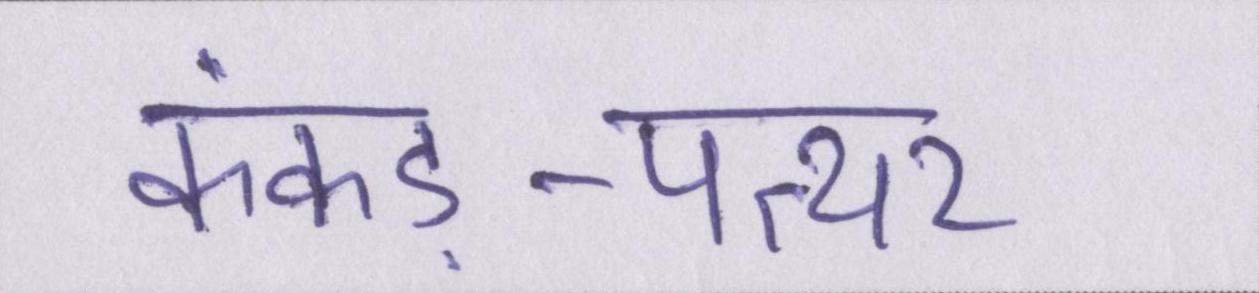 कंकड़-पत्थर